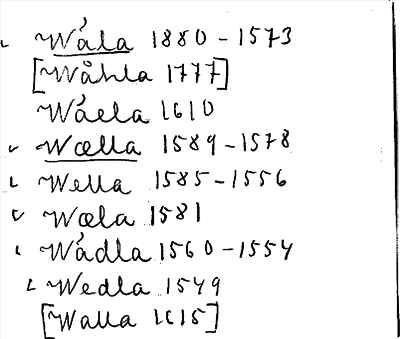 Wåla 1880-1573
[Wåhla 1777]
Wåela 1610
Wælla 1589-1578
Wella 1585-1556
Wæla 1581
Wådla 1560-1554
Wedla 1549
[Walla 1615]